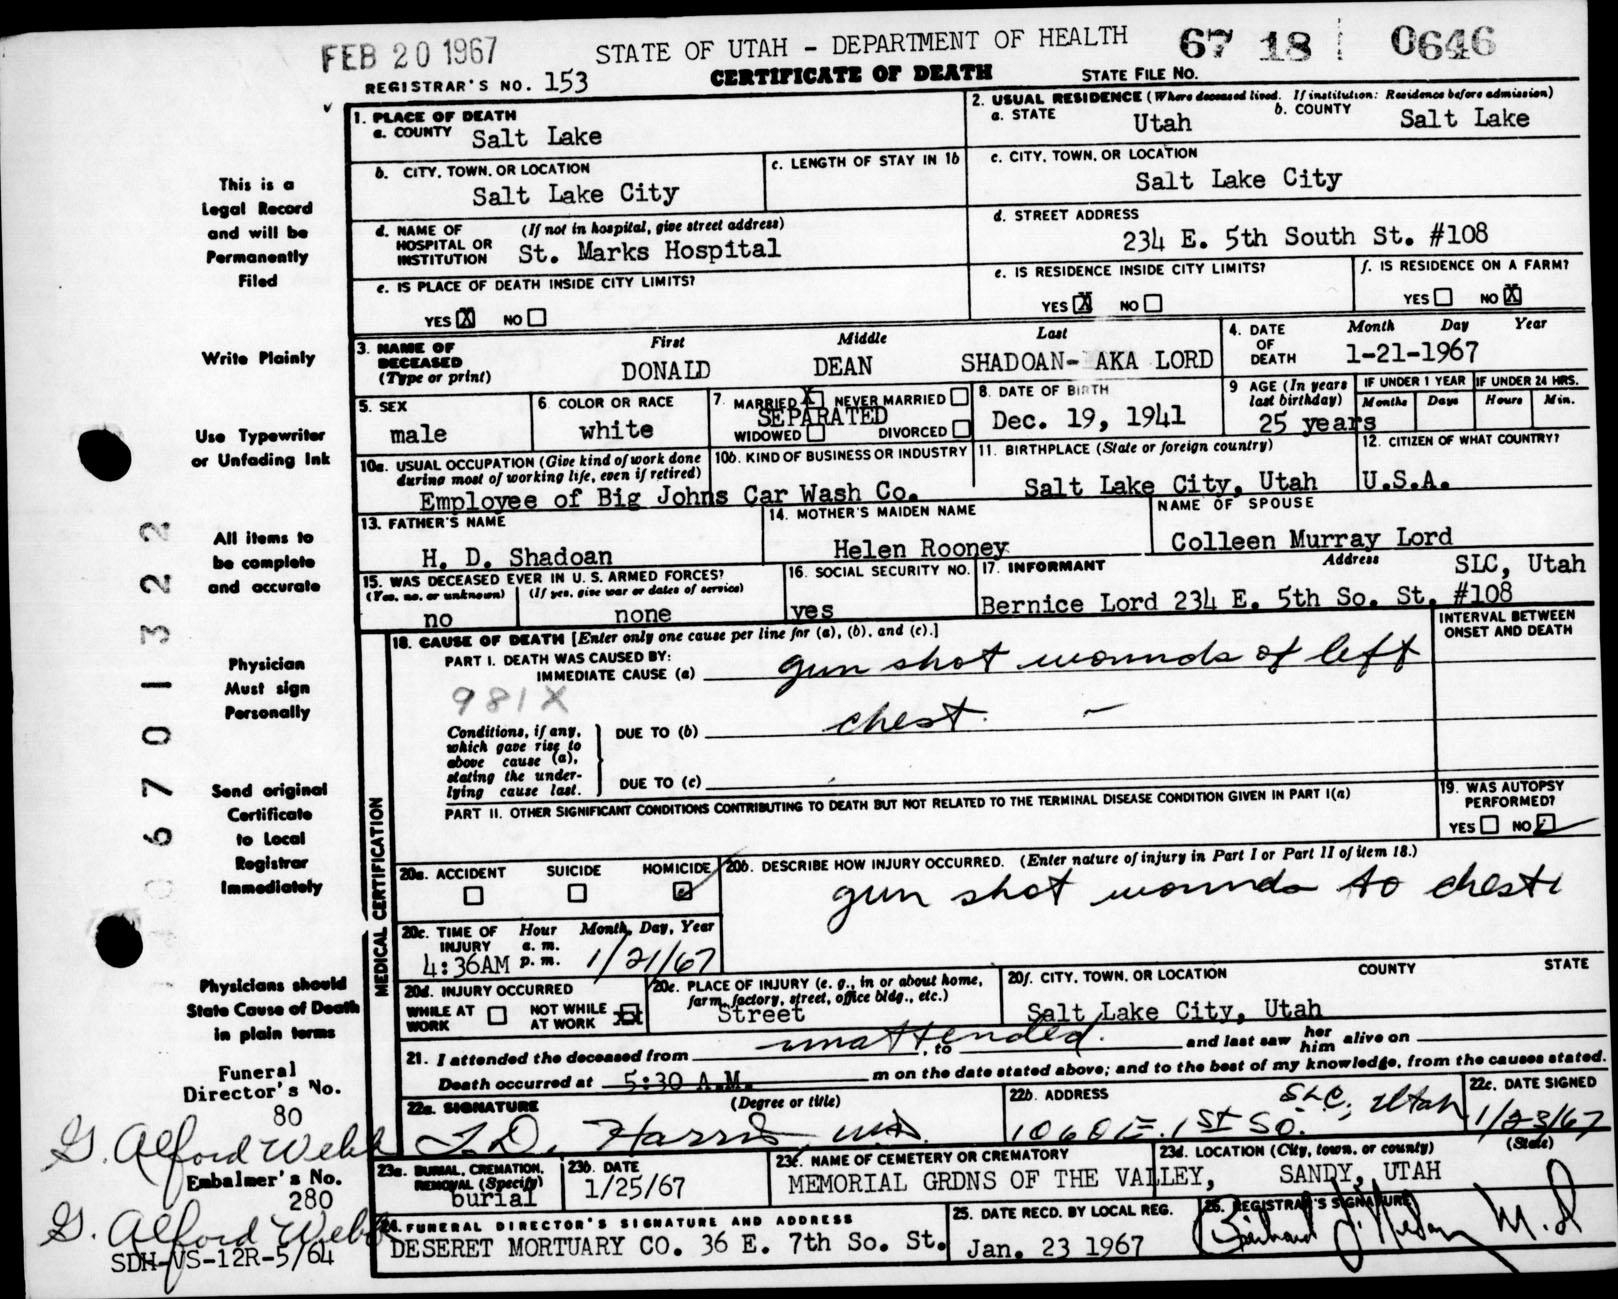 FEB 20 1967
STATE OF UTAH - DEPARTMENT OF HEALTH
67 18 0646
REGISTRAR'S NO. 153
CERTIFICATE OF DEATH
STATE FILE NO.
1. PLACE OF DEATH
a. COUNTY Salt Lake
2. USUAL RESIDENCE (Where deceased lived. If institution: Residence before admission)
a. STATE Utah b. COUNTY Salt Lake
b. CITY, TOWN, OR LOCATION
Salt Lake City
c. LENGTH OF STAY IN 1b
c. CITY, TOWN, OR LOCATION
Salt Lake City
d. NAME OF HOSPITAL OR INSTITUTION (If not in hospital, give street address)
St. Marks Hospital
d. STREET ADDRESS
234 E. 5th South St. #108
e. IS PLACE OF DEATH INSIDE CITY LIMITS?
YES X NO
e. IS RESIDENCE INSIDE CITY LIMITS?
YES X NO
f. IS RESIDENCE ON A FARM?
YES NO X
3. NAME OF DECEASED (Type or print)
First Middle Last
DONALD DEAN SHADOAN- AKA LORD
4. DATE OF DEATH Month Day Year
1-21-1967
5. SEX
male
6. COLOR OR RACE
white
7. MARRIED X NEVER MARRIED
SEPARATED
WIDOWED DIVORCED
8. DATE OF BIRTH
Dec. 19, 1941
9 AGE (In years last birthday)
25 years
IF UNDER 1 YEAR
Months Days
IF UNDER 24 HRS.
Hours Min.
10a. USUAL OCCUPATION (Give kind of work done during most of working life, even if retired)
10b. KIND OF BUSINESS OR INDUSTRY
Employee of Big Johns Car Wash Co.
11. BIRTHPLACE (State or foreign country)
Salt Lake City, Utah
12. CITIZEN OF WHAT COUNTRY?
U.S.A.
13. FATHER'S NAME
H. D. Shadoan
14. MOTHER'S MAIDEN NAME
Helen Rooney
NAME OF SPOUSE
Colleen Murray Lord
15. WAS DECEASED EVER IN U. S. ARMED FORCES?
(Yes, no, or unknown) (If yes, give war or dates of service)
no none
16. SOCIAL SECURITY NO.
yes
17. INFORMANT Address
SLC, Utah
Bernice Lord 234 E. 5th So. St. #108
18. CAUSE OF DEATH [Enter only one cause per line for (a), (b), and (c).]
INTERVAL BETWEEN ONSET AND DEATH
PART I. DEATH WAS CAUSED BY:
IMMEDIATE CAUSE (a) gun shot wounds of left
981X
Conditions, if any, which gave rise to above cause (a), stating the underlying cause last.
DUE TO (b) chest.
DUE TO (c)
PART II. OTHER SIGNIFICANT CONDITIONS CONTRIBUTING TO DEATH BUT NOT RELATED TO THE TERMINAL DISEASE CONDITION GIVEN IN PART I(a)
19. WAS AUTOPSY PERFORMED?
YES NO
20a. ACCIDENT SUICIDE HOMICIDE
20b. DESCRIBE HOW INJURY OCCURRED. (Enter nature of injury in Part I or Part II of item 18.)
gun shot wounds to chest
20c. TIME OF INJURY Hour a. m. p. m. Month, Day, Year
4:36AM 1/21/67
20d. INJURY OCCURRED
WHILE AT WORK NOT WHILE AT WORK
20e. PLACE OF INJURY (e. g., in or about home, farm, factory, street, office bldg., etc.)
Street
20f. CITY, TOWN, OR LOCATION COUNTY STATE
Salt Lake City, Utah
21. I attended the deceased from unattended. , to and last saw her him alive on
Death occurred at 5:30 A.M. m on the date stated above; and to the best of my knowledge, from the causes stated.
22a. SIGNATURE (Degree or title)
T. D. Harris M.D.
22b. ADDRESS
1060 E. 1st So. SLC, Utah
22c. DATE SIGNED
1/23/67
23a. BURIAL, CREMATION, REMOVAL (Specify)
burial
23b. DATE
1/25/67
23c. NAME OF CEMETERY OR CREMATORY
MEMORIAL GRDNS OF THE VALLEY,
23d. LOCATION (City, town, or county) (State)
SANDY, UTAH
24. FUNERAL DIRECTOR'S SIGNATURE AND ADDRESS
DESERET MORTUARY CO. 36 E. 7th So. St.
25. DATE RECD. BY LOCAL REG.
Jan. 23 1967
26. REGISTRAR'S SIGNATURE
M.D
MEDICAL CERTIFICATION
This is a
Legal Record
and will be
Permanently
Filed
Write Plainly
Use Typewriter
or Unfading Ink
All items to
be complete
and accurate
Physician
Must sign
Personally
Send original
Certificate
to Local
Registrar
Immediately
Physicians should
State Cause of Death
in plain terms
Funeral
Director's No.
80
G. Alford Webb
Embalmer's No.
280
G. Alford Webb
SDH-VS-12R-5/64
6701322